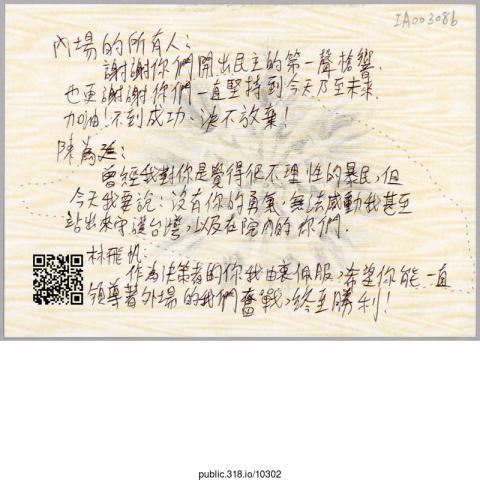 IA003086
內場的所有人：
謝謝你們開出民主的第一聲槍響，
也更謝謝你們一直堅持到今天乃至未來
加油！不到成功，決不放棄！
陳為廷：
曾經我對你是覺得很不理性的暴民，但
今天我要說：沒有你的勇氣，無法感動我甚至
站出來守護台灣，以及在院內的你們．
林飛帆：
作為決策者的你我由衷佩服，希望你能一直
領導著外場的我們奮戰，終至勝利！
public.318.io/10302